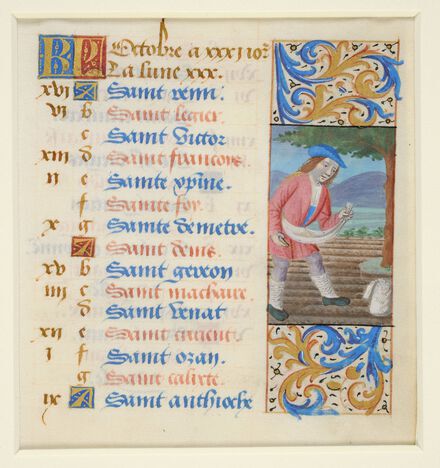 KL Octobre a xxxi ior
La lune xxx.
xvi A Saint remi.
vi b Saint legier
c Saint victor
xiii d Saint francois.
ii e Sainte xpine.
f Sainte foy.
x g Sainte demetre.
A Saint denis.
xv b Saint gereon
iiii c Saint machaire
d Saint venat
xii e Saint
i f Saint oran.
g Saint calixte.
ix A Saint anthioche